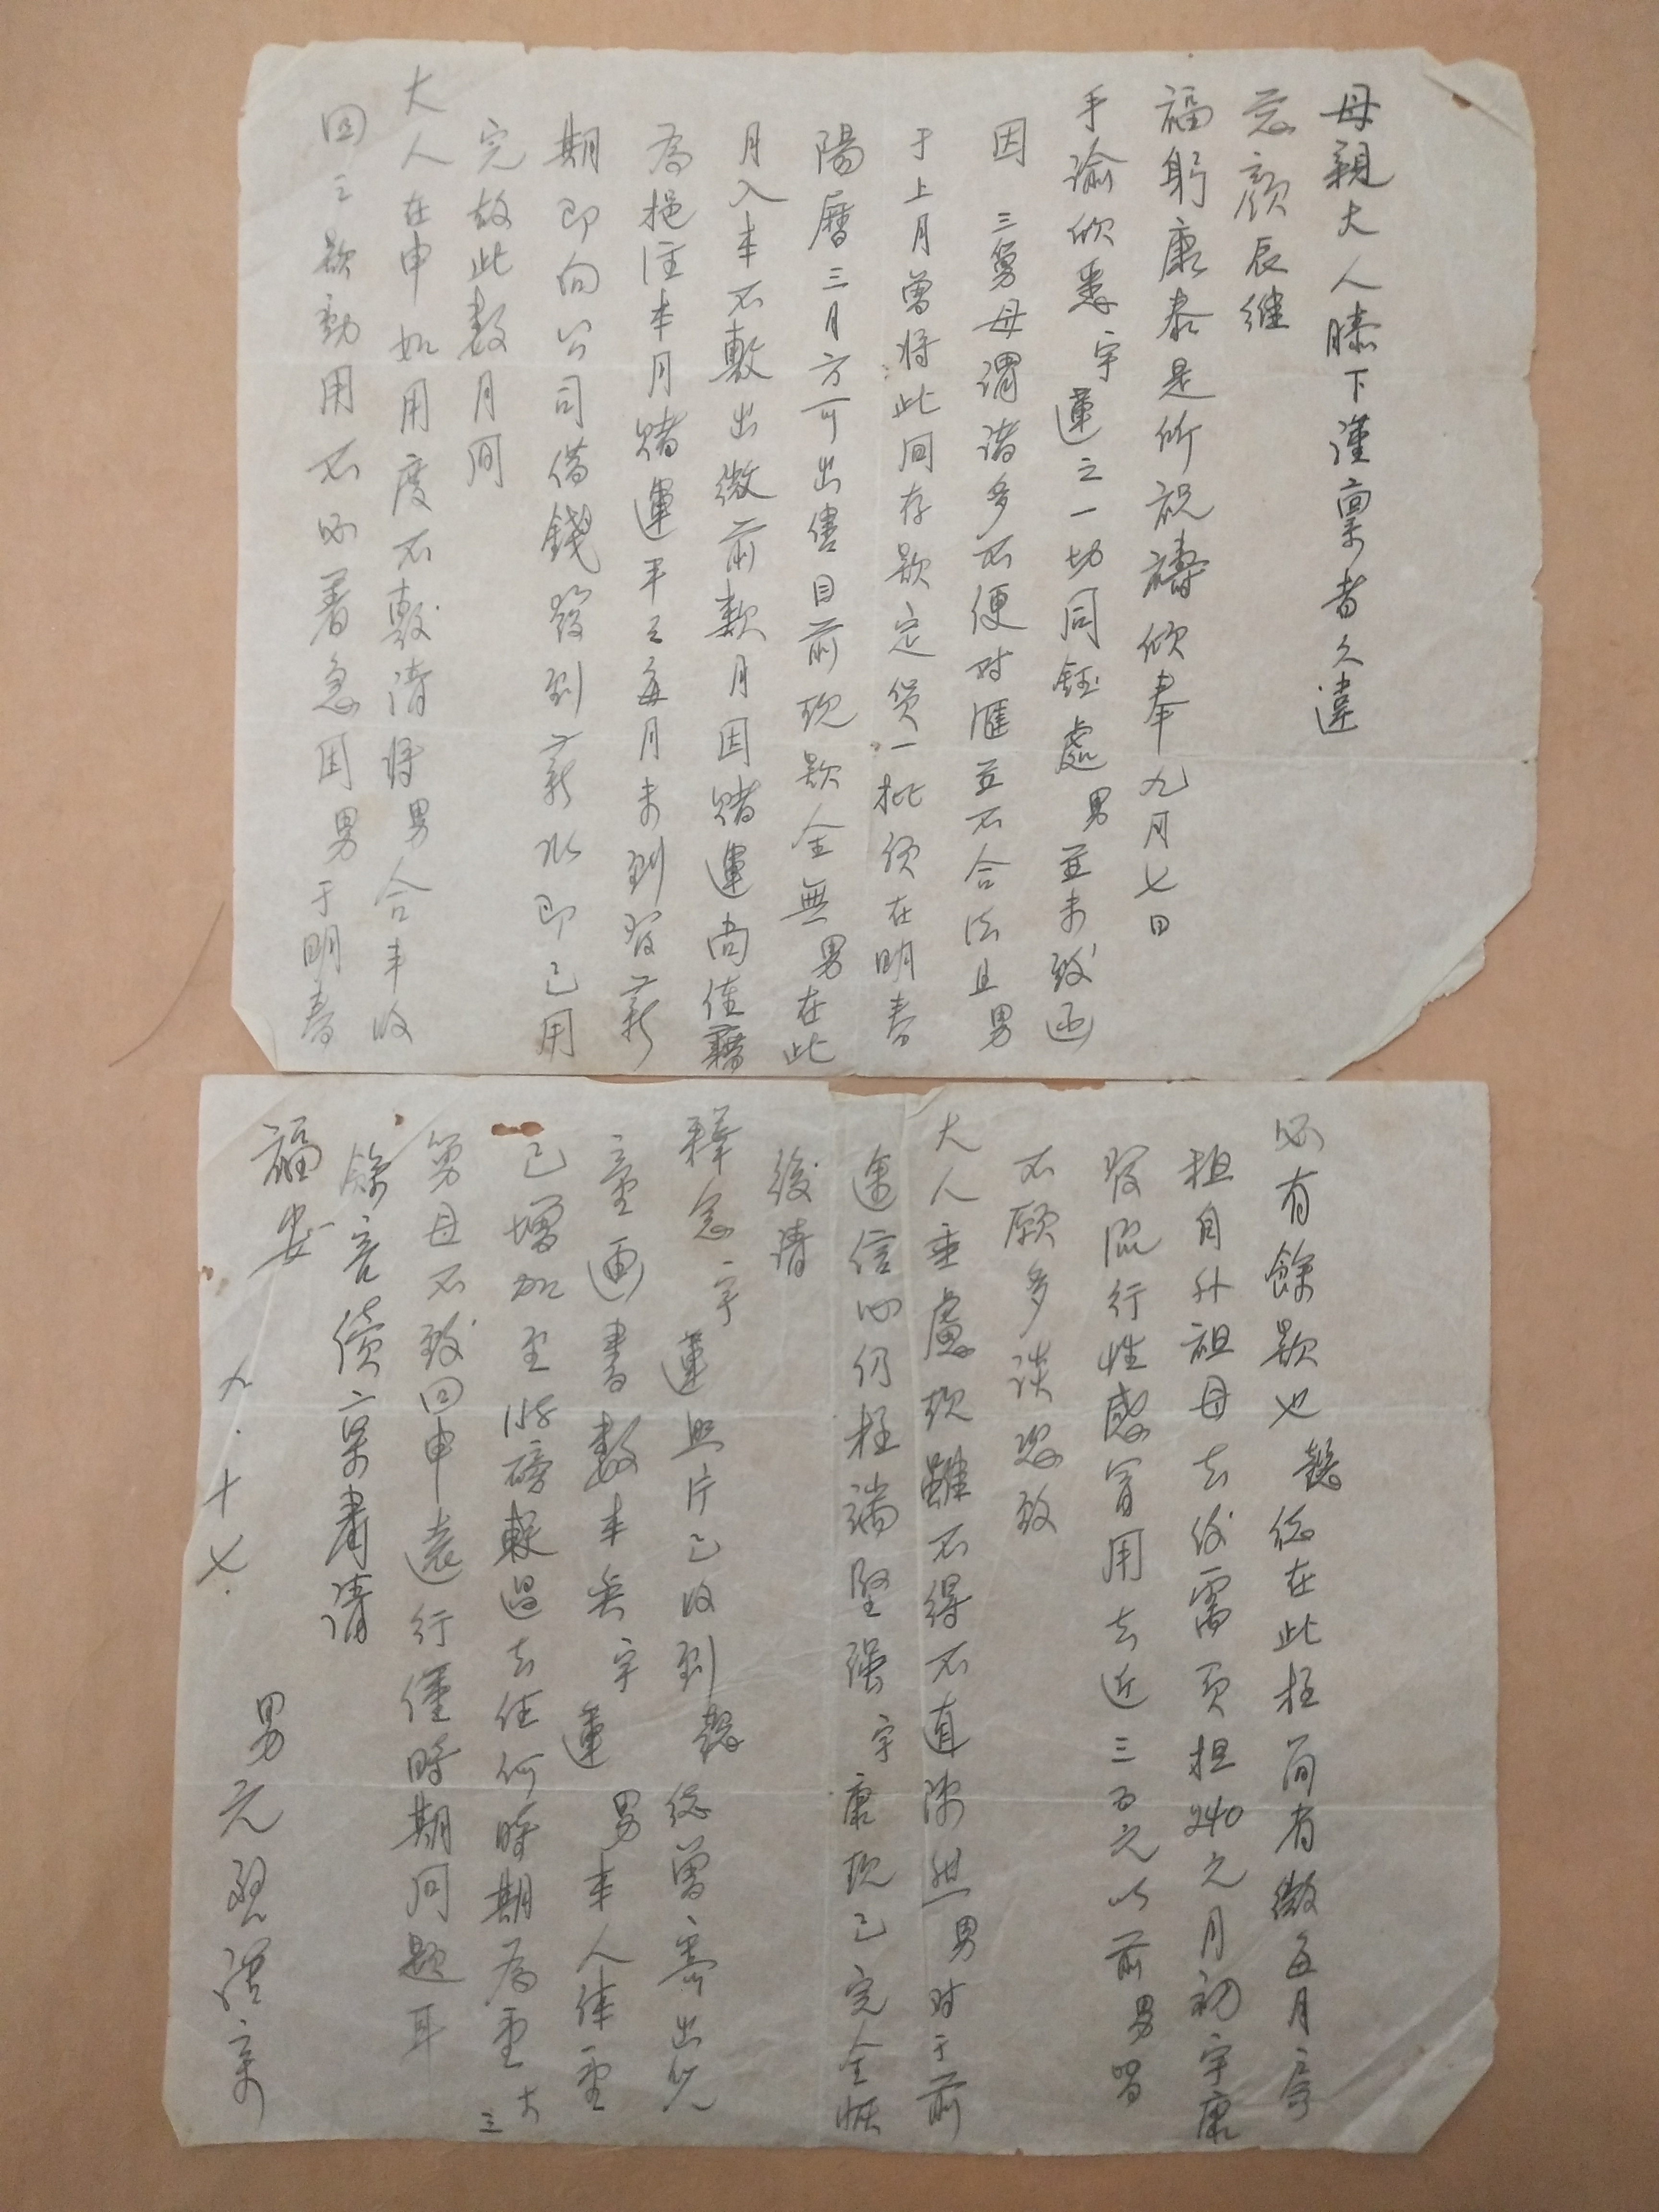 母親大人膝下謹稟者久違
慈顏辰維
福躬康泰是所祝禱頃奉九月七日
手諭欣悉宇蓮之一切同鈺處男並未致函
因三舅母謂諸多不便对滙並不合法且男
于上月曾将此间存款定貨一批须在明春
陽曆三月方可出售目前现款全無男在此
月入本不敷出微前数月因賭運尚佳藉
為挹注本月賭運平平每月未到發薪
期即向公司借錢發到薪水即已用
完故此数月间
大人在申如用度不敷請将男合丰收
回之款動用不必着急因男于明春
必有餘款也 總在此极简省微每月寄
祖自外祖母去後需負担240元月初宇康
發流行性感冒用去近三百元以前男
不願多談恐致
大人垂慮现雖不得不直陳然男对于前
途信心仍极端堅强宇康现已完全恢
後請
釋念宇蓮照片已收到 曾寄出兒
童画書数本 宇蓮男本人体重
已增加至 磅較過去任何時期為重大三
舅母不致回申遠行僅時期问题耳
餘言續稟肅請
福安
男元 謹稟
九.十七.